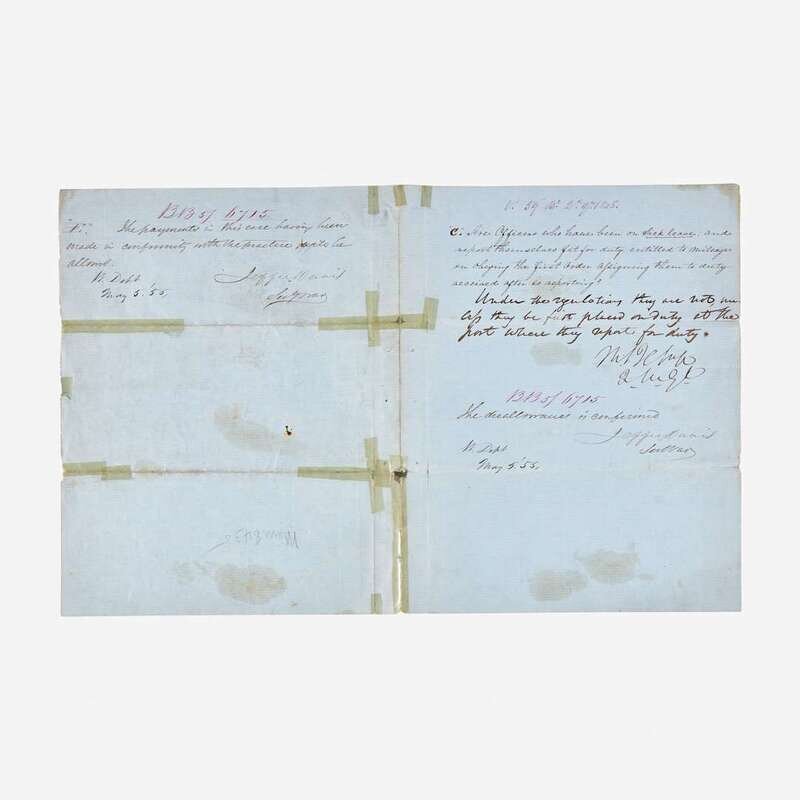 BB 51 6715
The payments in this case having been
made in conformity with the practice is to be
allowed.
W. Dept
May 5. '55.
Jeffer. Davis
Sec. War
C. Are Officers who have been on sick leave, and
report themselves fit for duty entitled to mileage
on obeying the first order assigning them to duty
received after so reporting?
Under the regulations they are not un
less they be first placed on duty at the
post where they report for duty.
BB 51 6715
The disallowance is confirmed
Jeffer. Davis
Sec. War
W. Dept
May 5. '55.